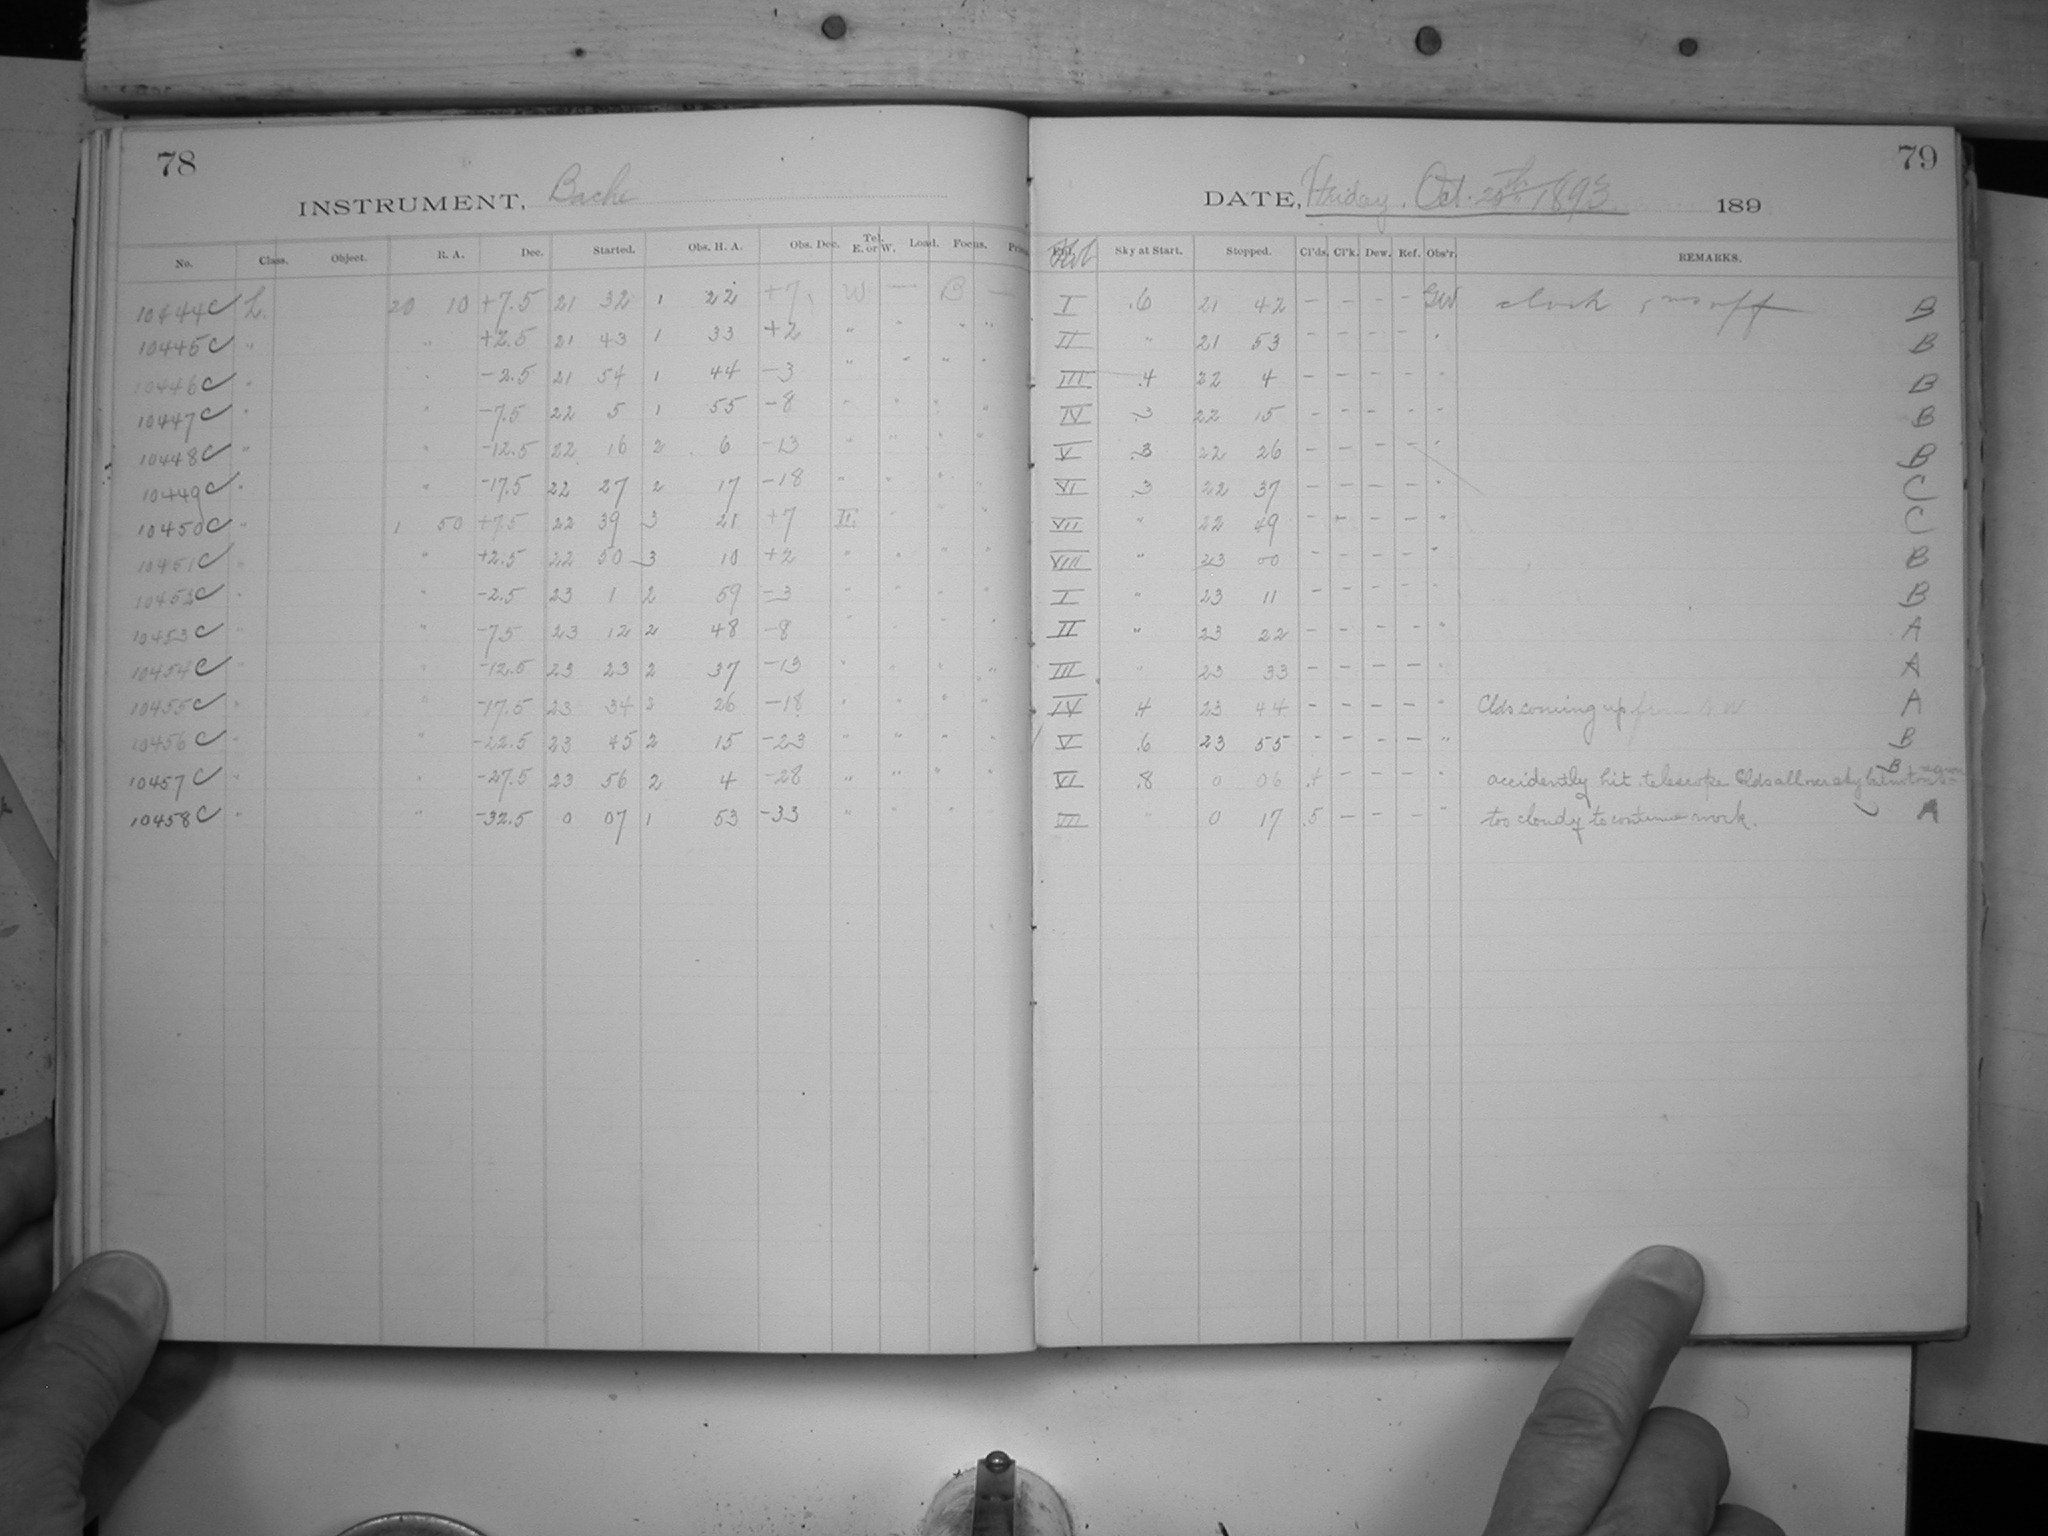 78
INSTRUMENT, Bache
No. Class. Object. R. A. Dec. Started. Obs. H. A. Obs. Dec. Tel. E. or W. Load. Focus.
10444C L. 20 10 +7.5 21 32 1 22 +7 W — B —
10445C " " +2.5 21 43 1 33 +2 " " " "
10446C " " -2.5 21 54 1 44 -3 " " " "
10447C " " -7.5 22 5 1 55 -8 " " " "
10448C " " -12.5 22 16 2 6 -13 " " " "
10449C " " -17.5 22 27 2 17 -18 " " " "
10450C " 1 50 +7.5 22 39 3 21 +7 " " "
10451C " " +2.5 22 50 3 10 +2 " " " "
10452C " " -2.5 23 1 2 59 -3 " " " "
10453C " " -7.5 23 12 2 48 -8 " " " "
10454C " " -12.5 23 23 2 37 -13 " " " "
10455C " " -17.5 23 34 2 26 -18 " " " "
10456C " " -22.5 23 45 2 15 -23 " " " "
10457C " " -27.5 23 56 2 4 -28 " " " "
10458C " " -32.5 0 07 1 53 -33 " " " "
79
DATE, Friday. Oct. 20th 1893 189
Sky at Start. Stopped. Cl'ds. Cl'k. Dew. Ref. Obs'r. REMARKS.
I .6 21 42 — — — — clock off B
II " 21 53 — — — — " B
III .4 22 4 — — — — " B
IV .3 22 15 — — — — " B
V .3 22 26 — — — — " B
VI .3 22 37 — — — — " C
VII " 22 49 — — — — " C
VIII " 23 00 — — — — " B
I " 23 11 — — — — " B
II " 23 22 — — — — " A
III " 23 33 — — — — " A
IV .4 23 44 — — — — " Clds coming up from N W A
V .6 23 55 — — — — " B
VI .8 0 06 .4 — — — " accidently hit telescope Clds all over sky B
VII " 0 17 .5 — — — " too cloudy to continue work. A